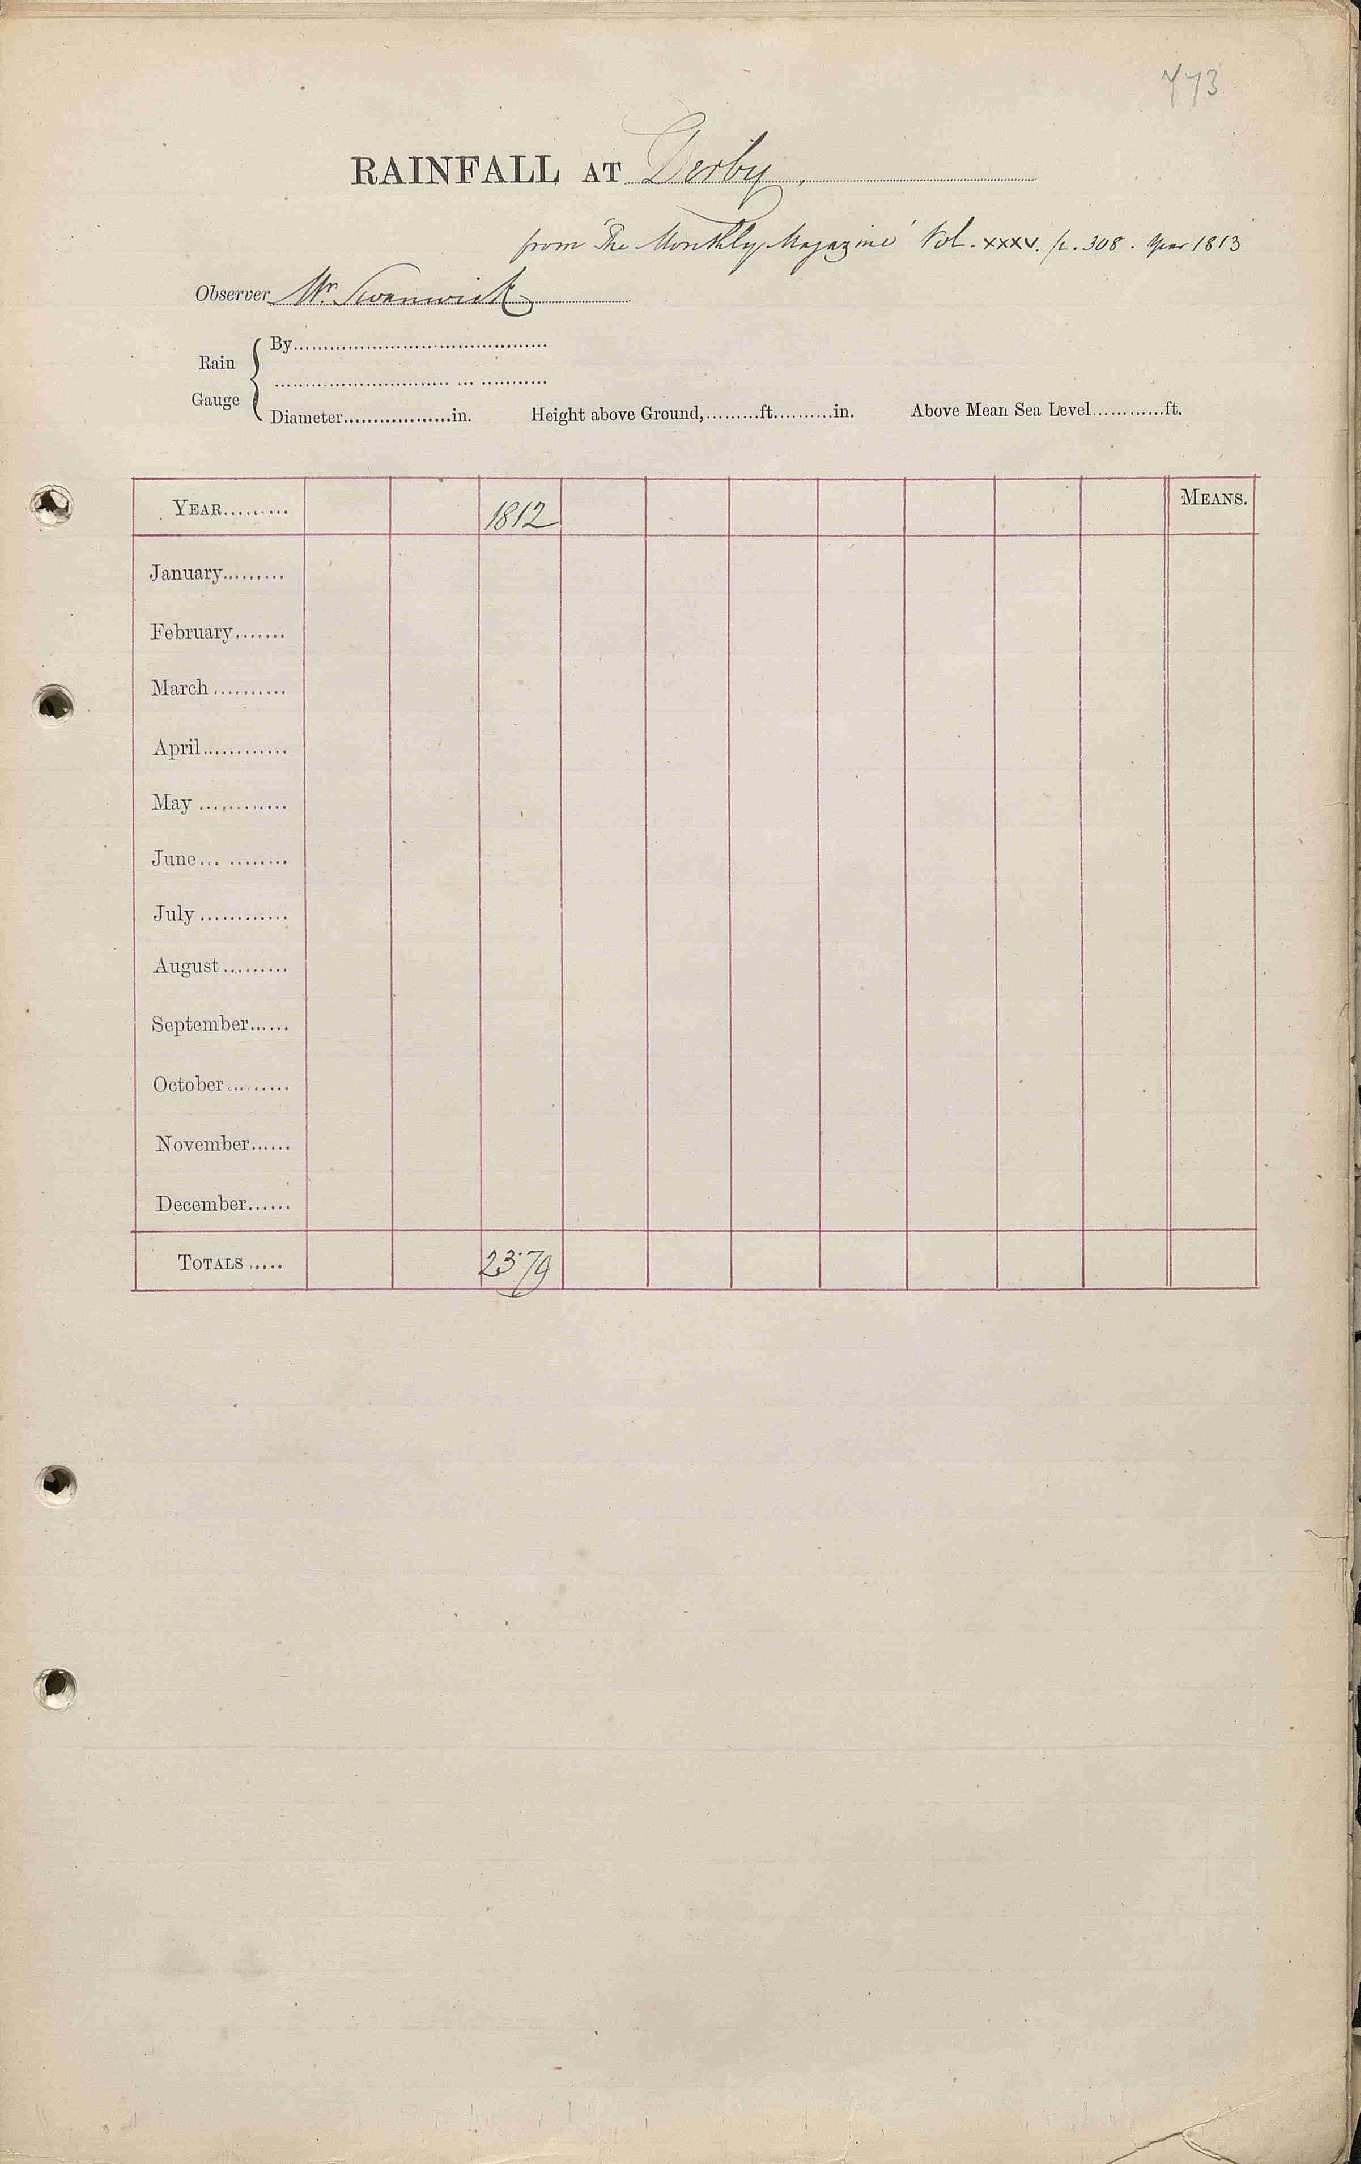 773
RAINFALL AT Derby.
from "The Monthly Magazine" Vol. XXXV. p. 308. Year 1813
Observer Mr Swanwick
Rain Gauge { By
Diameter..................in. Height above Ground,.........ft..........in. Above Mean Sea Level............ft.
YEAR......... 1812 MEANS.
January.........
February.......
March..........
April............
May............
June... ........
July............
August.........
September......
October.........
November......
December......
TOTALS..... 23·79